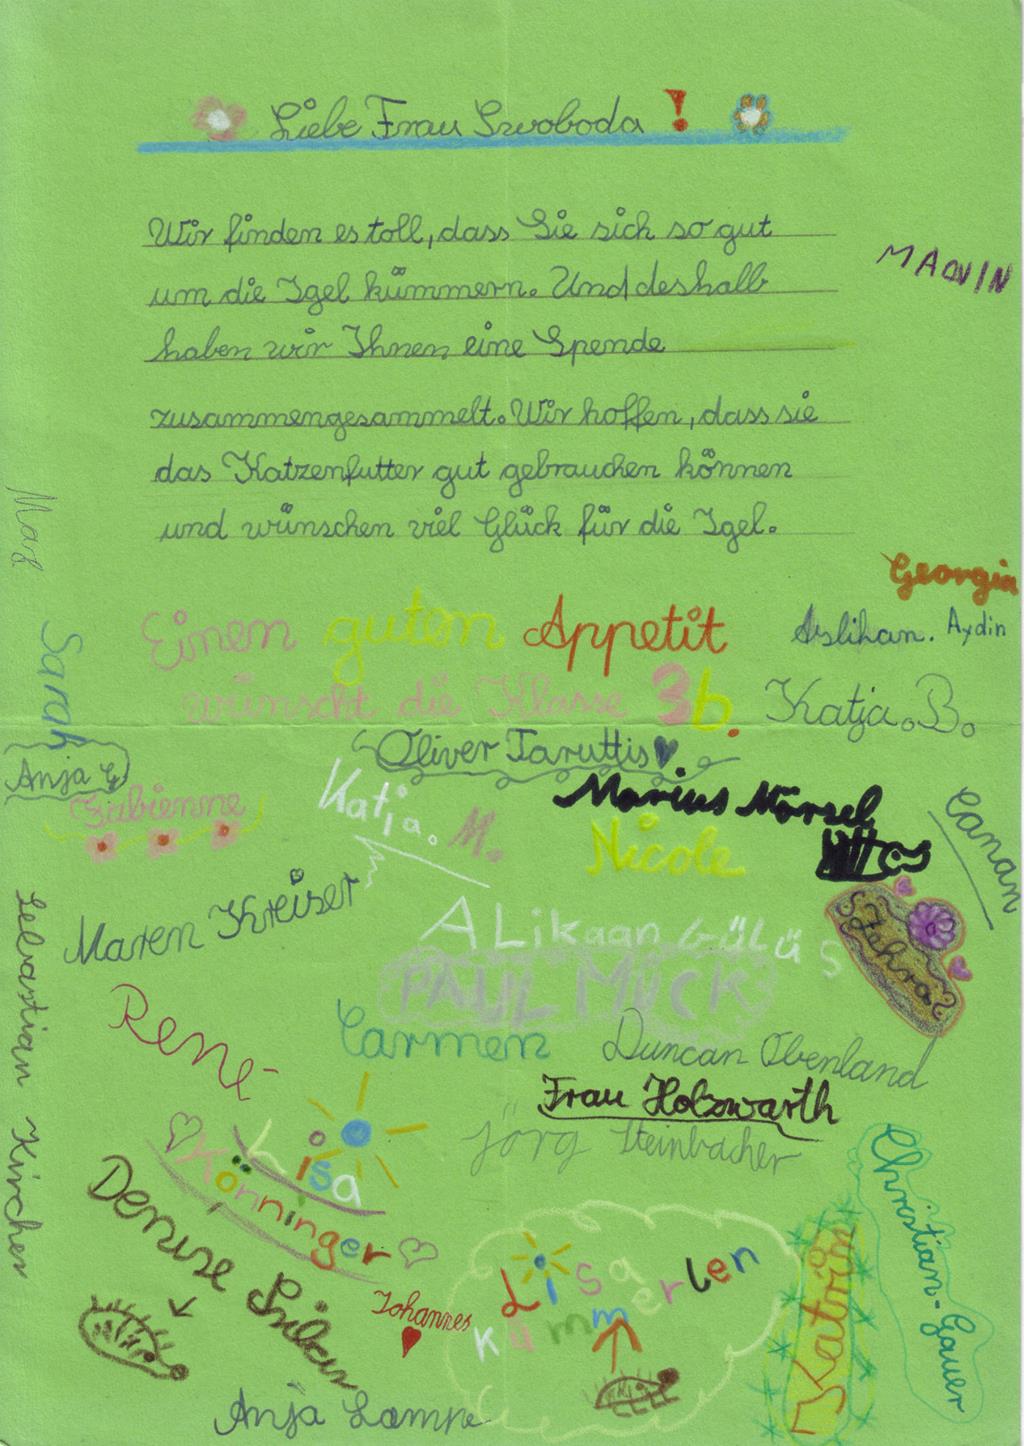 Liebe Frau Swoboda!
Wir finden es toll, dass Sie sich so gut
um die Igel kümmern. Und deshalb
haben wir Ihnen eine Spende
zusammengesammelt. Wir hoffen, dass sie
das Katzenfutter gut gebrauchen können
und wünschen viel Glück für die Igel.
MARVIN
Georgia
Einen guten Appetit
Aslihan. Aydin
wünscht die Klasse 3b.
Katja. B.
Sarah
Oliver Taruttis
Anja G
Fabienne
Katja. M.
Marius Mörsel
Nicole
Canan
Maren Kreiser
ALikaan Gülüs
Zehra
PAUL MUCK
Sebastian Kircher
Rene
Carmen
Duncan Obenland
Frau Holzwarth
Jörg Steinbacher
Lisa
Könninger
Christian-Gauer
Denise
Johannes
Lisa
Kümmerlen
Katrin
Anja Lampe